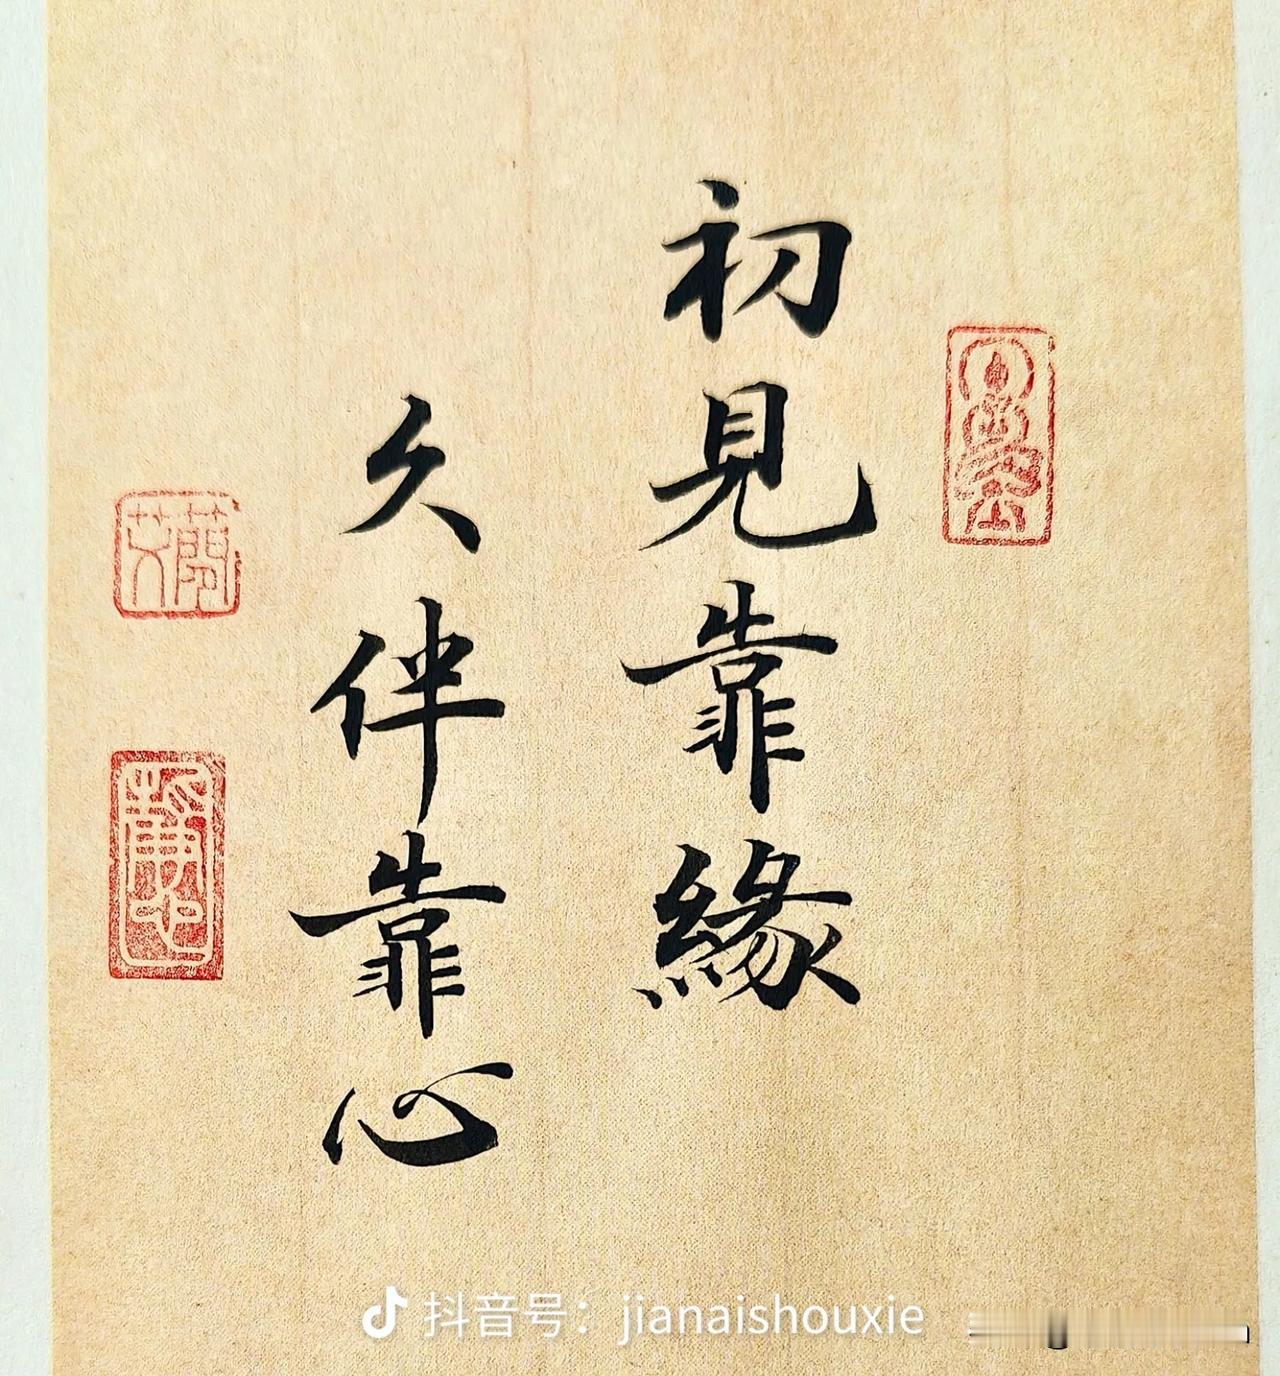 初見靠緣
久伴靠心
抖音号：jianaishouxie